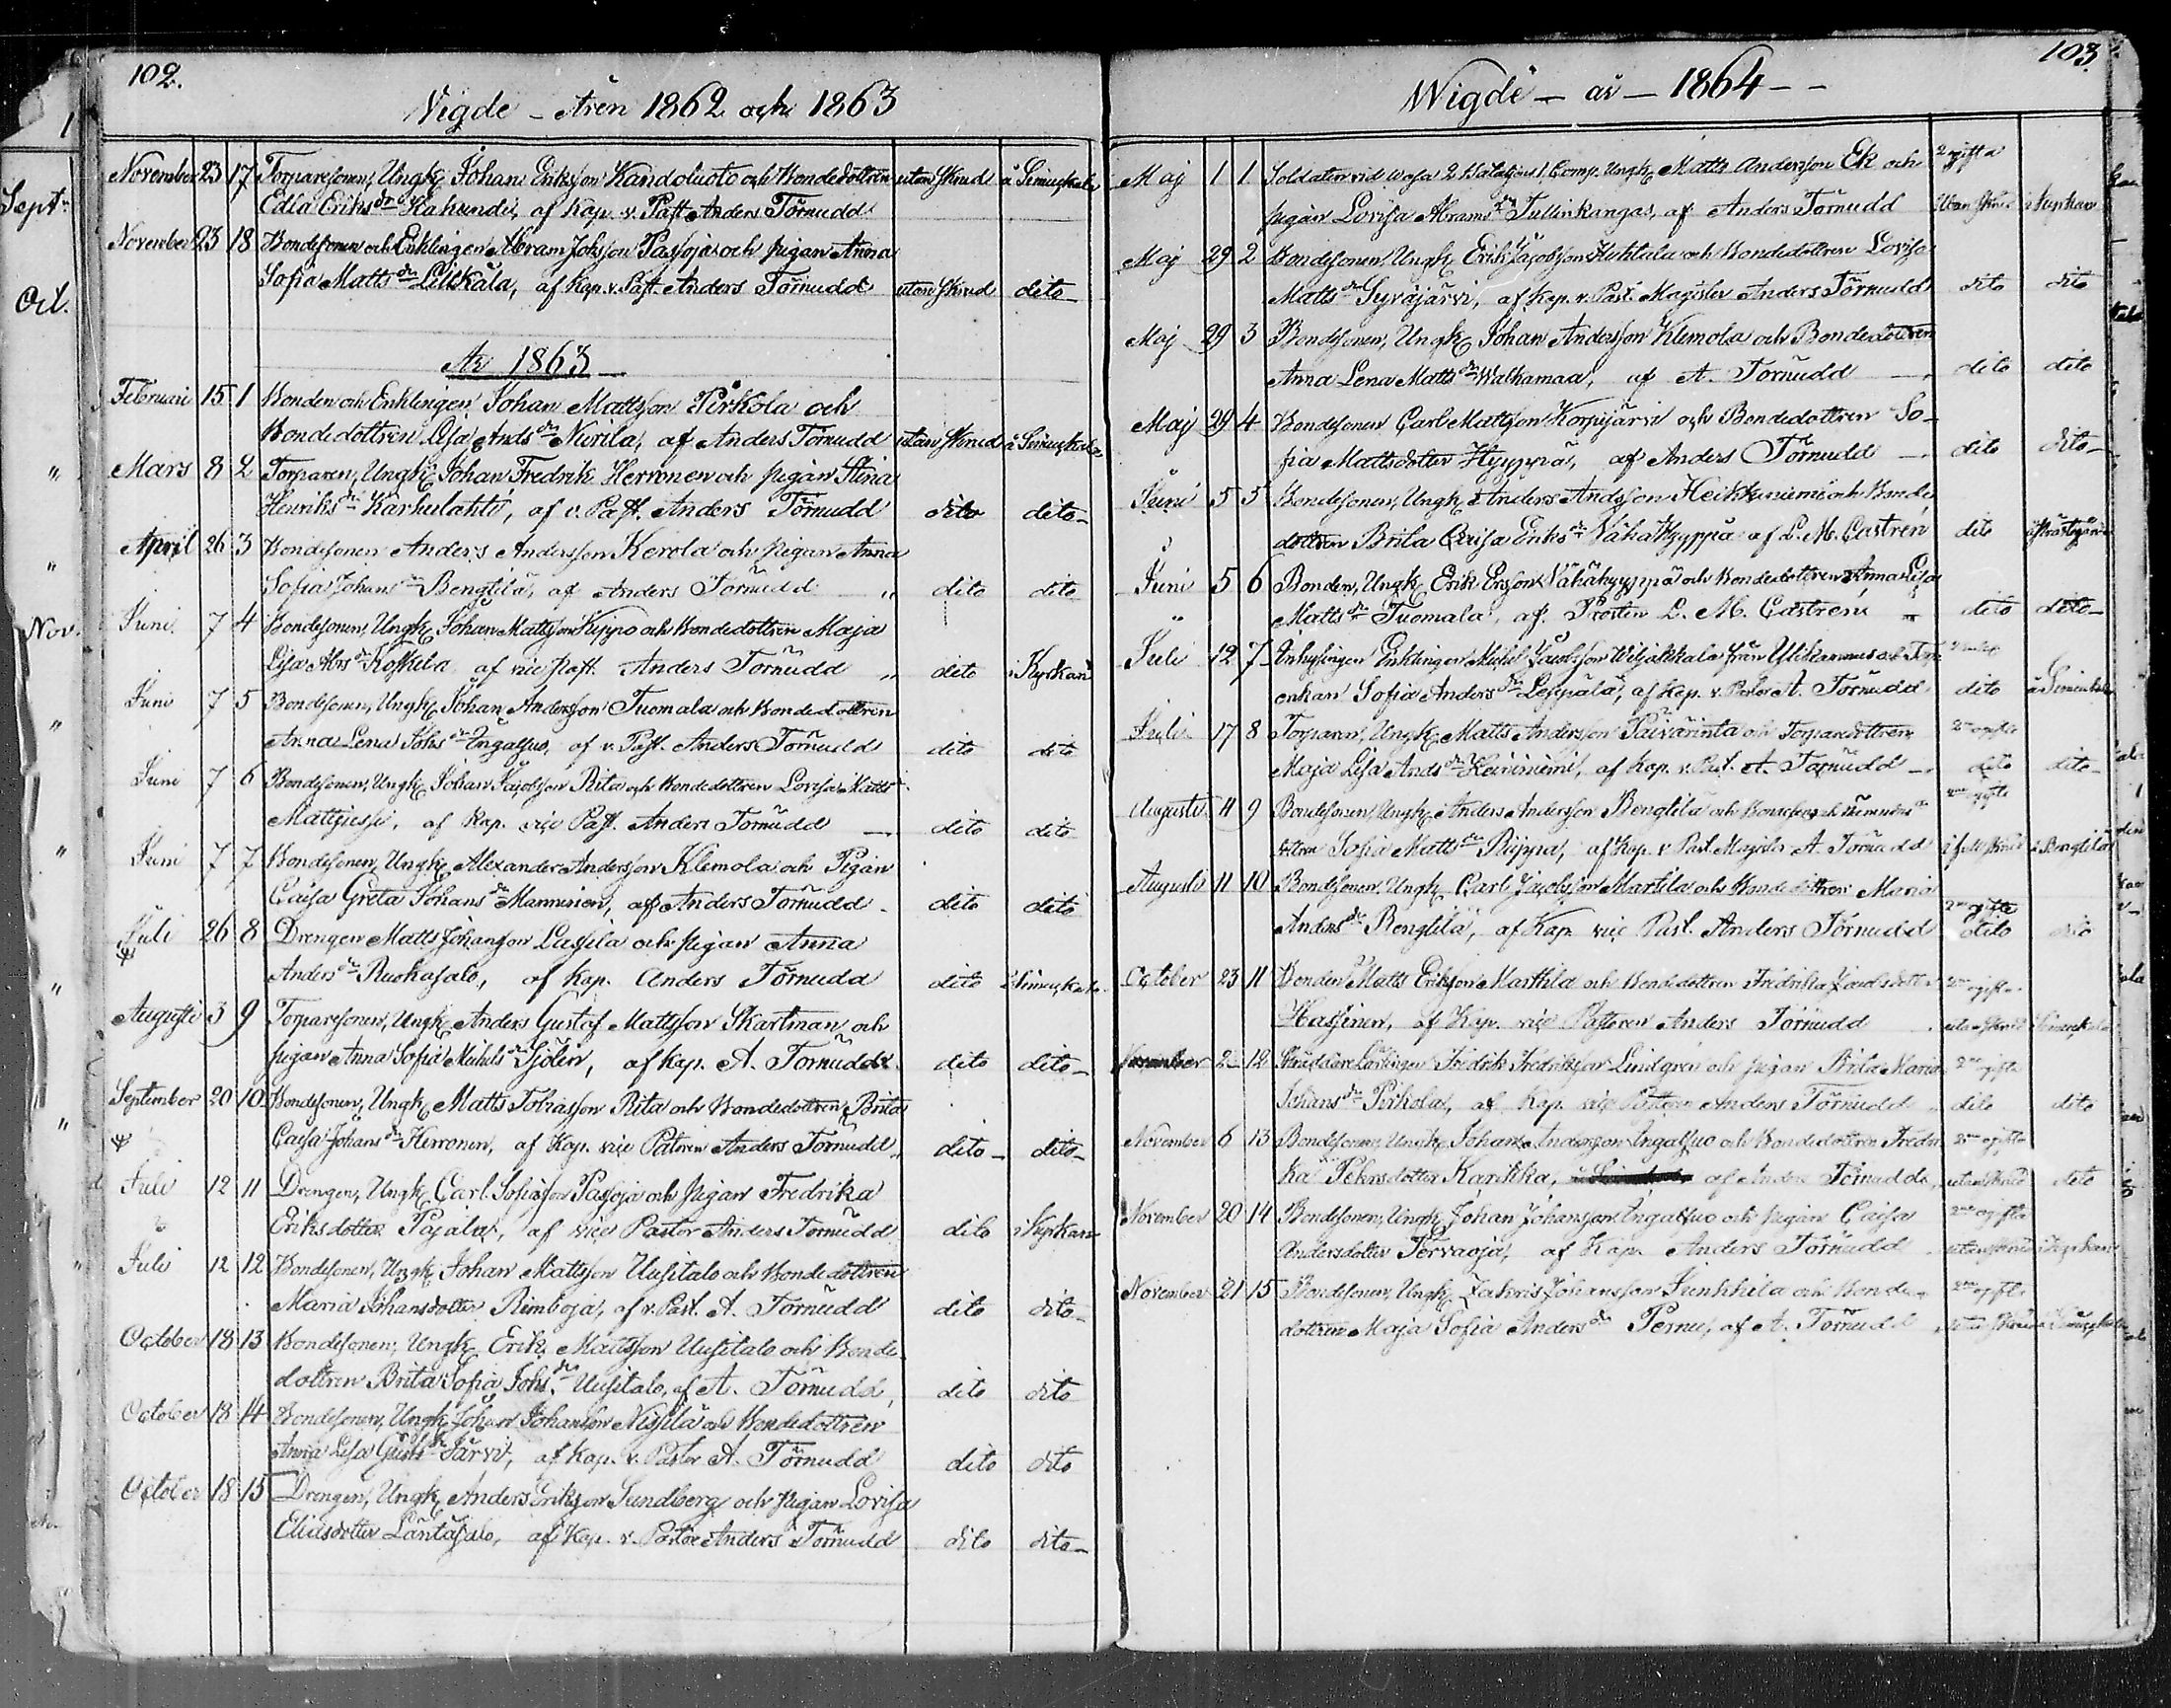 102.
Vigde - Åren 1862 och 1863
November 23 17 Torparesonen, Ungk. Johan Eriksson Kandoluoto och Bondedottren utan skrud å Simuskala
Edla Eriksdr Hakunde, af Kap. v. Past Anders Törnudd
November 23 18 Bondesonen och Enklingen Abram Johsson Passoja och pigan Anna
Sofia Mattsdr Lillkåla, af Kap. v. Past. Anders Törnudd utan skrud dito
År 1863
Februari 15 1 Bonden och Enklingen Johan Mattsson Pirkola och
Bondedottren Lisa Andsdr Niurila, af Anders Törnudd utan skrud å Simuskala
Mars 8 2 Torparen, Ungk. Johan Fredrik Herronen och pigan Stina
Henriksdr Karhulahti, af v. Past. Anders Törnudd dito dito
April 26 3 Bondesonen Anders Andersson Kerola och pigan Anna
Sofia Johansdr Bengtilä, af Anders Törnudd dito dito
Juni 7 4 Bondesonen, Ungk. Johan Mattsson Kippo och Bondedottren Maja
Lisa Abrsdr Koskela af vice past. Anders Törnudd dito i Kyrkan
Juni 7 5 Bondesonen, Ungk. Johan Andersson Tuomala och Bondedottren
Anna Lena Johsdr Ingalsuo, af v. Past. Anders Törnudd dito dito
Juni 7 6 Bondesonen, Ungk. Johan Jacobsson Rita och Bondedottren Lovisa Matts
af Kap. vice Past. Anders Törnudd dito dito
Juni 7 7 Bondesonen, Ungk. Alexander Andersson Klemola och Pigan
Caisa Greta Johansdr Manninen, af Anders Törnudd dito dito
Juli 26 8 Drengen Matts Johansson Lassila och pigan Anna
Andersdr Ruokasalo, af Kap. Anders Törnudd dito
Augusti 3 9 Torparesonen, Ungk. Anders Gustaf Mattsson Skartman och
pigan Anna Sofia Michelsdr Sjölin, af Kap. A. Törnudd dito dito
September 20 10 Bondesonen, Ungk. Matts Tobiasson Rita och Bondedottren Brita
Caisa Johansdr Herronen, af Kap. vice Pastoren Anders Törnudd dito dito
Juli 12 11 Drengen, Ungk. Carl Passoja och pigan Fredrika
Eriksdotter Pajala, af vice Pastor Anders Törnudd dito i Kyrkan
Juli 12 12 Bondesonen, Ungk. Johan Mattsson Uusitalo och Bondedottren
Maria Johansdotter Rimboja, af v. Past. A. Törnudd dito dito
October 18 13 Bondesonen, Ungk. Erik Mattsson Uusitalo och Bonde
dottren Brita Sofia Johsdr Uusitalo, af A. Törnudd, dito dito
October 18 14 Bondesonen, Ungk. Johan Johansson Nissilä och Bondedottren
Anna Lisa Järvi, af Kap. v. Pastor A. Törnudd dito dito
October 18 15 Drengen, Ungk. Anders Eriksson Sundberg och pigan Lovisa
Eliasdotter Läntäsalo, af Kap. v. Pastor Anders Törnudd dito dito
103.
Wigde - år - 1864 - -
Maj 1 1 Soldaten vid Wasa 2 Bataljons 1. Comp. Ungk. Matts Andersson Ek och 2 ogifta
pigan Lovisa Abramsdr Tullinkangas, af Anders Törnudd utan skrud i Kyrkan
Maj 29 2 Bondesonen, Ungk. Erik Jacobsson Huhtala och Bondedottren Lovisa
Mattsdr Syväjärvi, af Kap. v. Past. Magister Anders Törnudd dito dito
Maj 29 3 Bondesonen, Ungk. Johan Andersson Klemola och Bondedottren
Anna Lena Mattsdr Walkamaa, af A. Törnudd dito dito
Maj 29 4 Bondesonen Carl Mattsson Korpijärvi och Bondedottren So-
fia Mattsdotter Hyyppä, af Anders Törnudd dito dito
Juni 5 5 Bondesonen, Ungk. Anders Andsson Heikkiniemi och Bonde
dottren Brita Caisa Eriksdr Vähä Hyyppä af L. M. Castrén dito i Prästgården
Juni 5 6 Bonden, Ungk. Erik Ersson Vähähyyppä och Bondedottren Anna Lisa
" Mattsdr Tuomala, af Prosten L. M. Castrén dito dito
Juli 12 7 Inhysingen Enklingen Michel Jacobsson Wiljakkala från
enkan Sofia Andersdr Leppälä, af Kap. v. Pastor A. Törnudd dito å Simuskala
Juli 17 8 Torparen, Ungk. Matts Andersson Päivärinta och Torparedottren 2ne ogifta
Maja Lisa Andsdr Keininiemi, af Kap. v. Past. A. Törnudd dito dito
Augusti 11 9 Bondesonen, Ungk. Anders Andersson Bengtilä och 2ne ogifta
dottren Sofia Mattsdr Piippa, af Kap. v Past. Magister A. Törnudd i full skrud å Bengtilä
Augusti 11 10 Bondesonen, Ungk. Carl Jacobsson Martila och Bondedottren Maria
2ne ogifta
Andersdr Bengtilä, af Kap. vice Past. Anders Törnudd dito dito
October 23 11 Bonden Matts Eriksson Marttila och Bondedottren Fredrika 2ne ogifta
Hassinen, af Kap. vice Pastoren Anders Törnudd utan skrud Simuskala
November 2 12 Skräddare Lärlingen Fredrik Fredriksson Lindgren och pigan Brita Maria 2ne ogifta
Johansdr Pirkola, af Kap. vice Pastoren Anders Törnudd dito dito
November 6 13 Bondesonen, Ungk. Johan Andersson Ingalsuo och Bondedottren Fredri 2ne ogifta
ka Pehrsdotter Karikka, af Anders Törnudd utan skrud dito
November 20 14 Bondesonen, Ungk. Johan Johansson Ingalsuo och pigan Caisa 2ne ogifta
Andersdotter Tervaoja, af Kap. Anders Törnudd utan skrud i Kyrkan
November 21 15 Bondesonen, Ungk. Zakris Johansson Junkkila och Bonde- 2ne ogifta
dottren Maja Sofia Andersdr Pernu, af A. Törnudd utan skrud Simuskala
Sept.
Oct.
Nov.